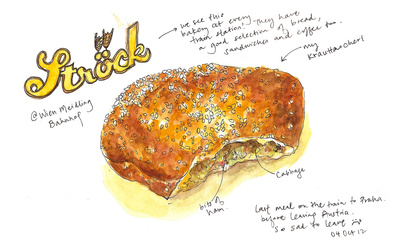 Ströck
we see this
bakery at every
train station! They have
a good selection of bread,
sandwiches and coffee too.
my
Krauttascherl
@Wien Meidling
Bahnhof
cabbage
bits of
ham.
last meal on the train to Praha.
before leaving Austria.
so sad to leave
04 Oct 12